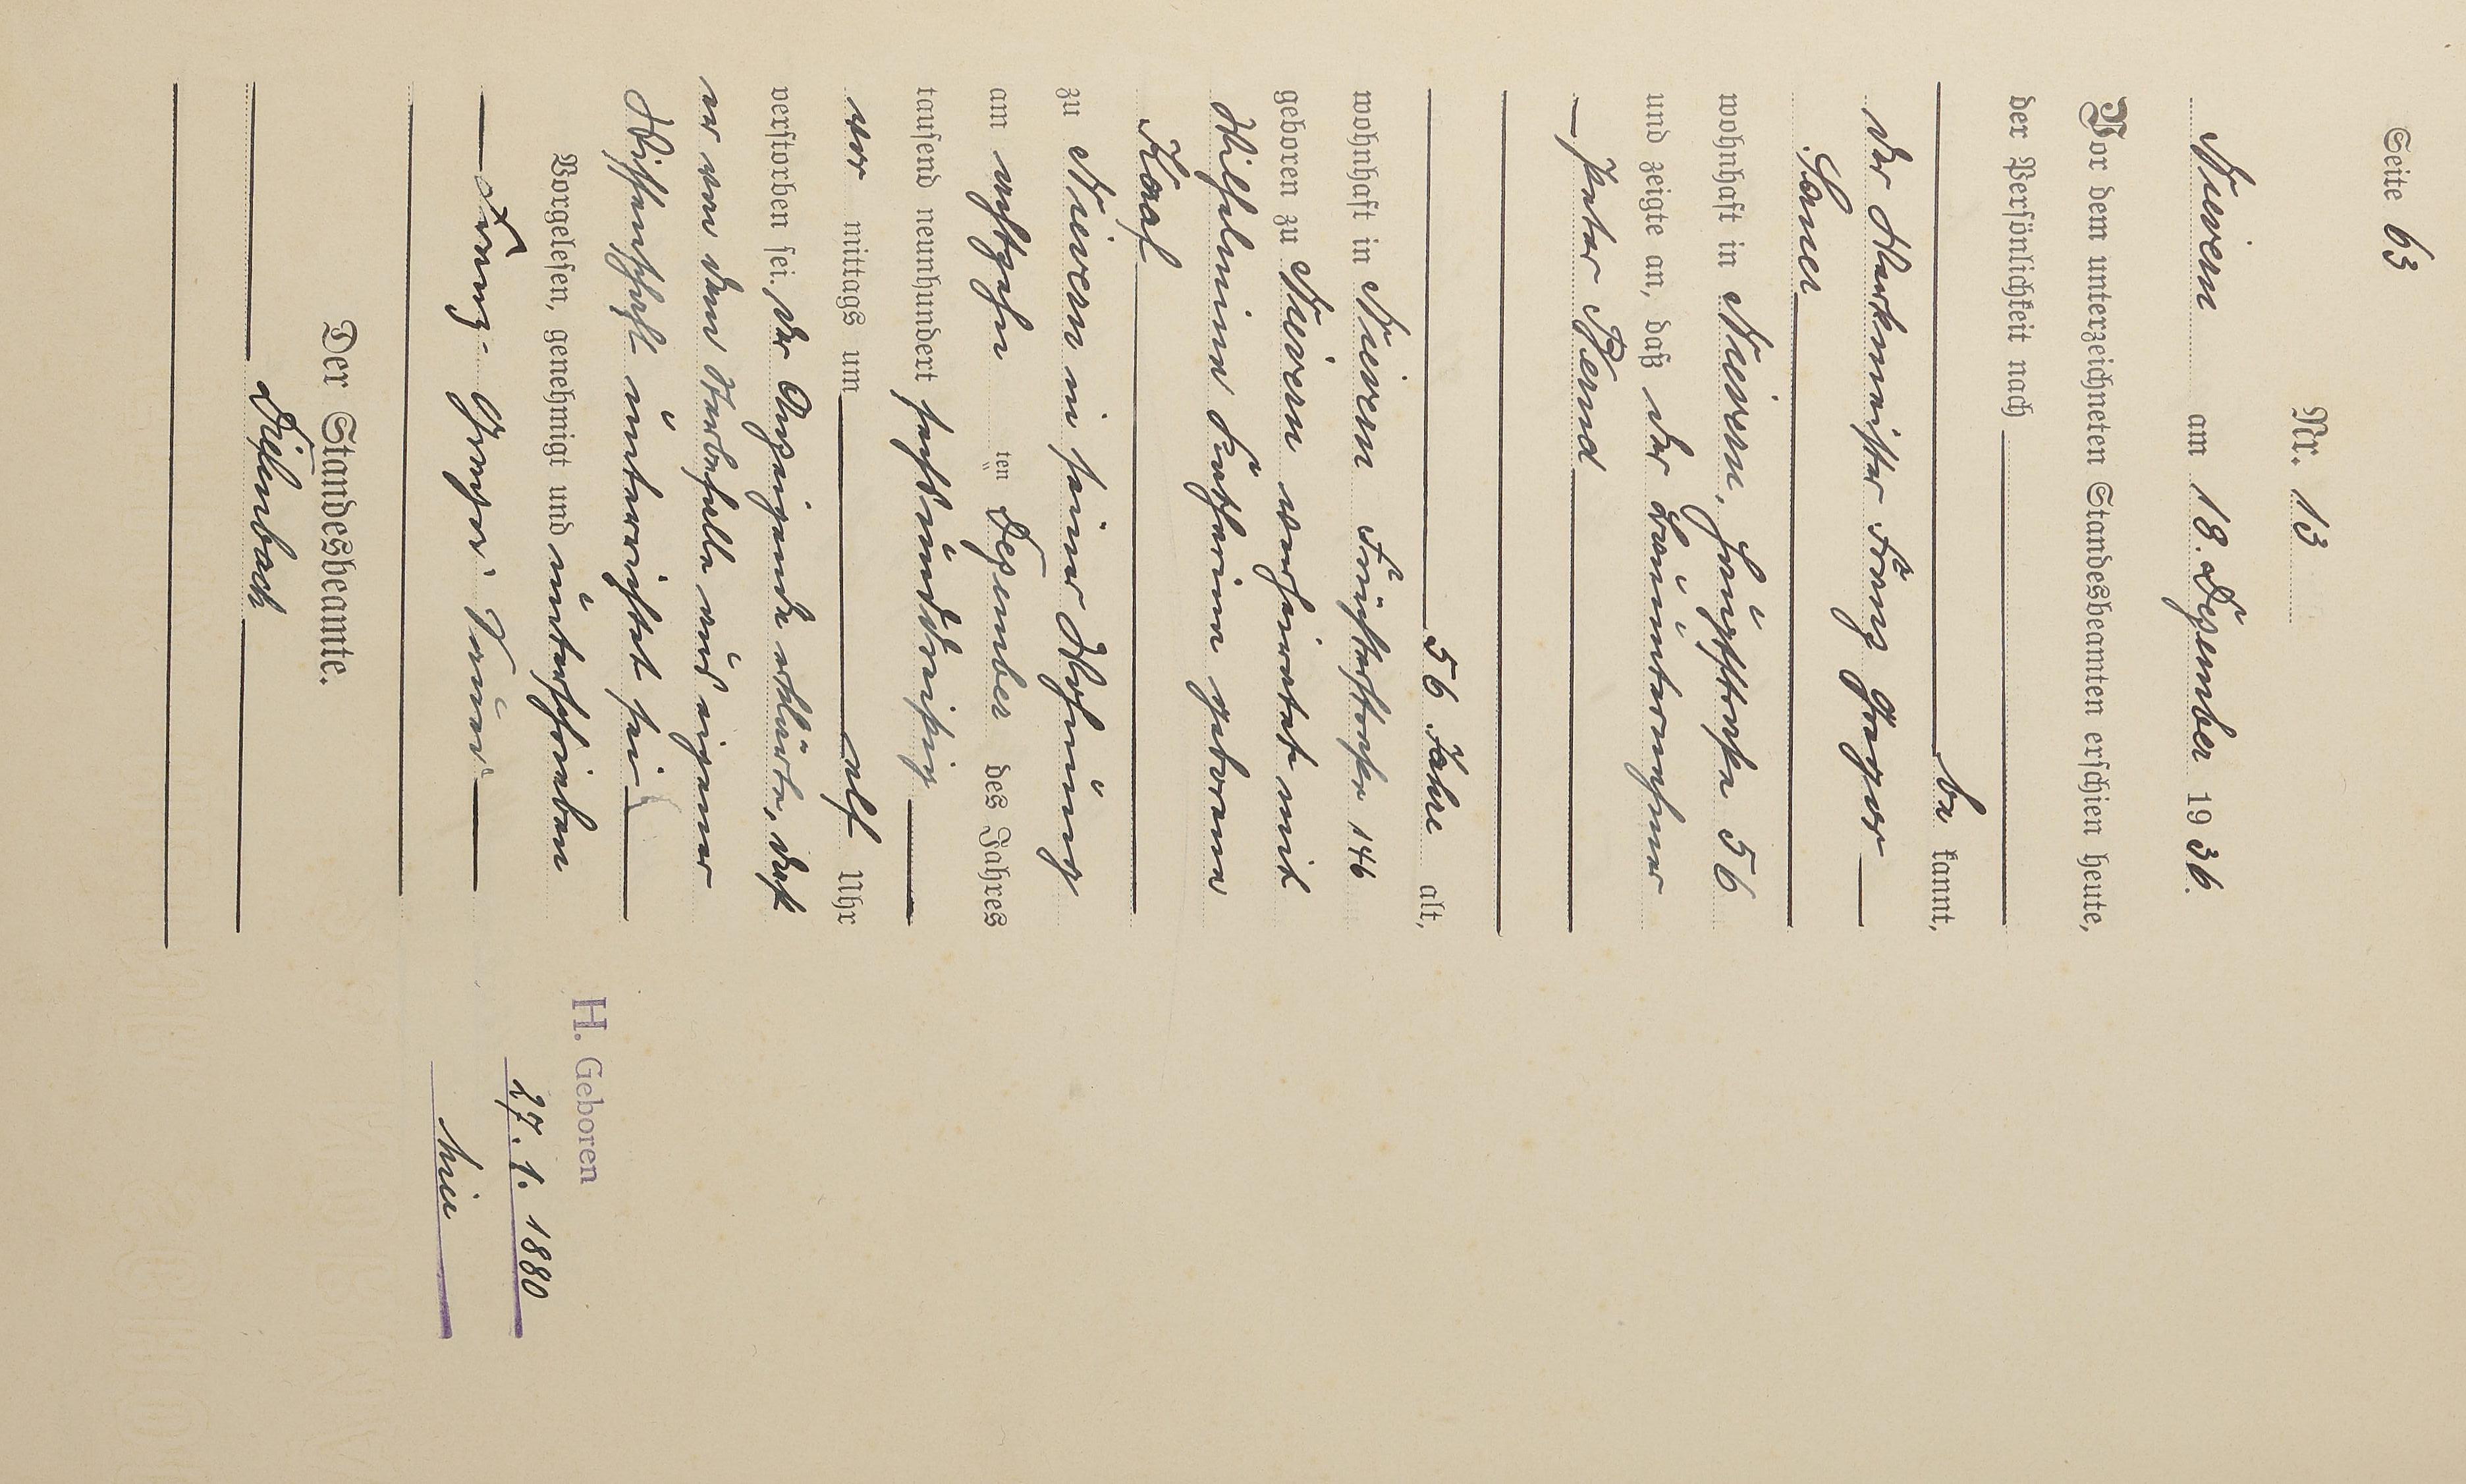 Seite 63
Nr. 13
Nievern am 18. Dezember 1936.
Vor dem unterzeichneten Standesbeamten erschien heute,
der Persönlichkeit nach
be kannt,
der Werkmeister Franz Gregor
Sauer
wohnhaft in Nievern, Hauptstraße 56
und zeigte an, daß der Bauunternehmer
Peter Bernd
56 Jahre alt,
wohnhaft in Nievern 146
geboren zu Nievern verheiratet mit
Wilhelmine Katharina geborene
zu Nievern in seiner Wohnung
am achtzehn ten Dezember des Jahres
tausend neunhundert sechsunddreißig
vor mittags um elf Uhr
verstorben sei. Der Anzeigende erklärte, daß
er von dem Sterbefalle aus eigener
Wissenschaft unterrichtet sei
Vorgelesen, genehmigt und unterschrieben
Franz
Der Standesbeamte.
H. Geboren
27. 1. 1880